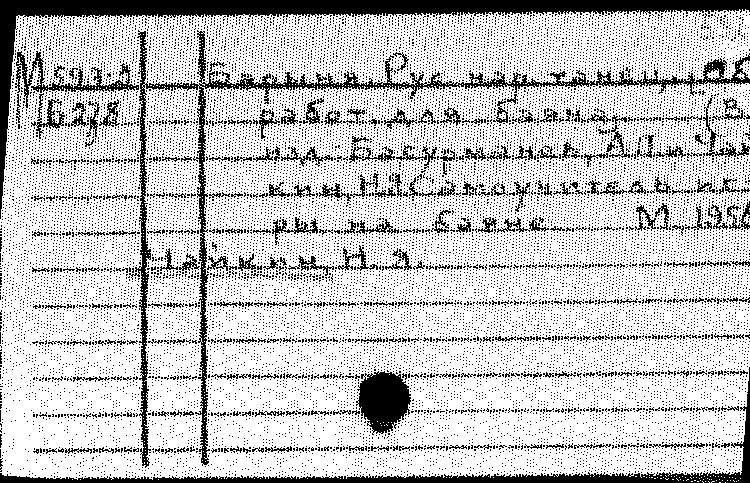 М 593.2 Барыня. Рус. нар. танец, об
Б 278 работ. для баяна. (В
изд.: Басурманов, А.П. и Чай
кин, Н.Я. Самоучитель иг
ры на баяне. М., 1956
Чайкин, Н.Я.